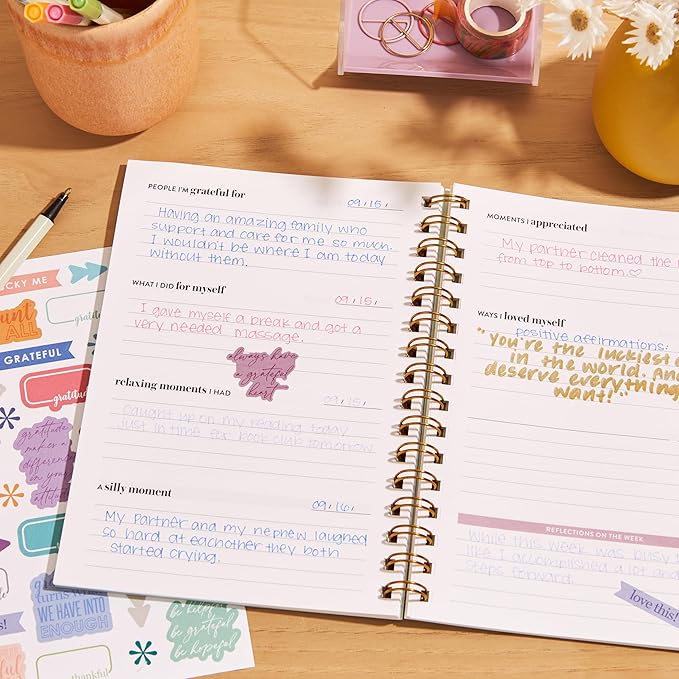 PEOPLE I'M grateful for
09/15/
Having an amazing family who
support and care for me so much.
I wouldn't be where I am today
without them.
WHAT I DID for myself
09/15/
I gave myself a break and got a
very needed massage.
always have
a grateful
heart
relaxing moments I HAD
09/15/
Caught up on my reading today
just in time for book club tomorrow
A silly moment
09/16/
My partner and my nephew laughed
so hard at eachother they both
started crying.
MOMENTS I appreciated
My partner cleaned the
from top to bottom.♡
WAYS I loved myself
positive affirmations:
"You're the luckiest
in the world. And
deserve everything
want!"
REFLECTIONS ON THE WEEK
While this week was busy
like I accomplished a lot and
steps forward.
love this!
CKY ME
ALL
GRATEFUL
gratitude
gratitude
makes a
difference
in your
attitude
turns what
WE HAVE INTO
ENOUGH
be helpful
be grateful
be hopeful
thankful